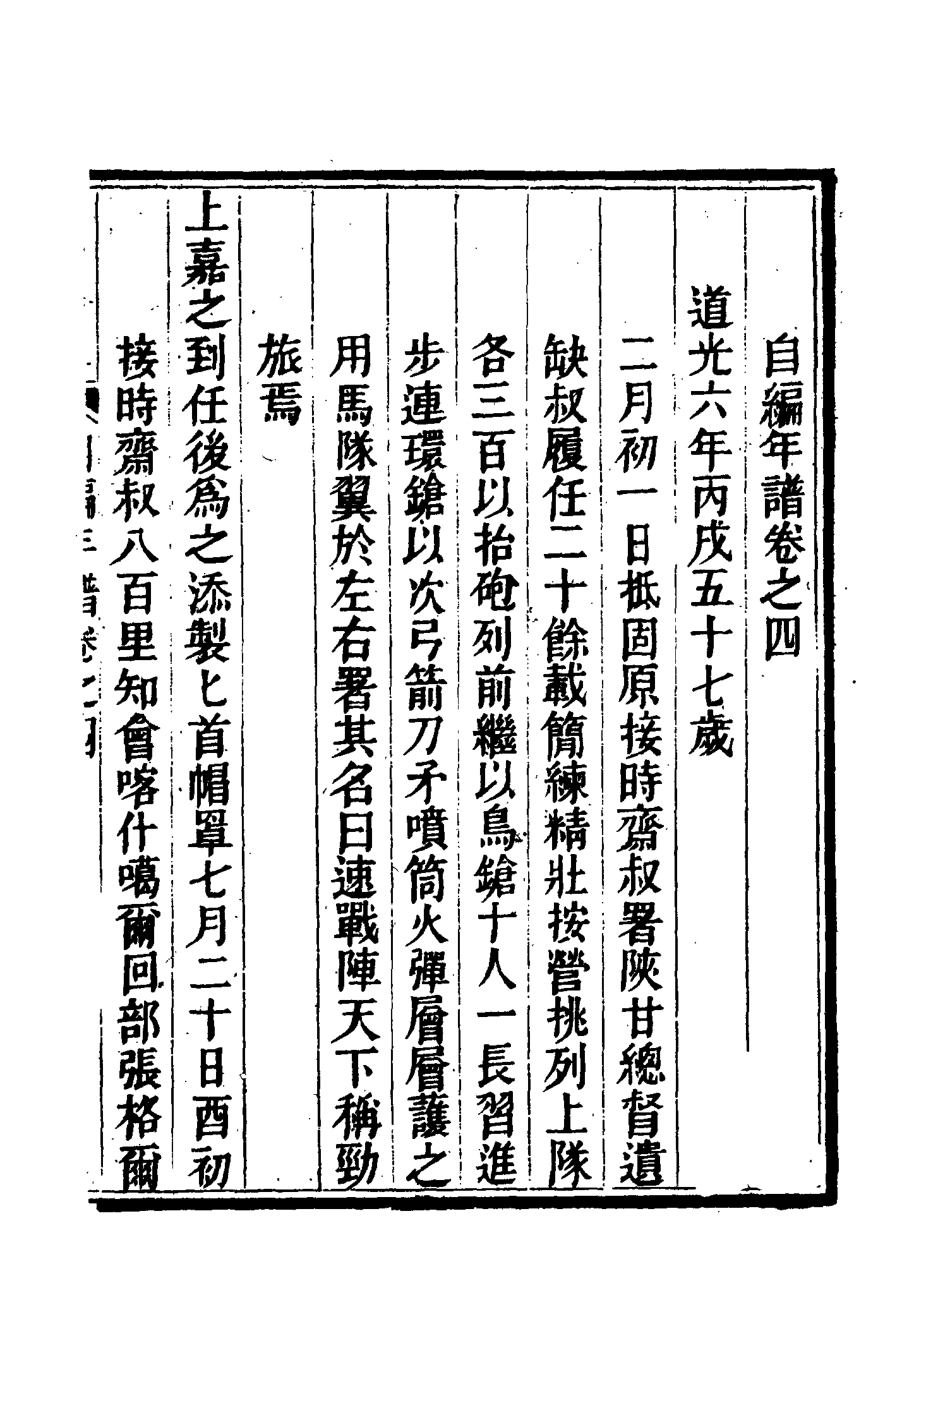 自編年譜卷之四
道光六年丙戌五十七歲
二月初一日抵固原接時齋叔署陝甘總督遺
缺叔履任二十餘載簡練精壯按營挑列上隊
各三百以抬砲列前繼以鳥鎗十人一長習進
步連環鎗以次弓箭刀矛噴筒火彈層層護之
用馬隊翼於左右署其名曰速戰陣天下稱勁
旅焉
上嘉之到任後爲之添製匕首帽罩七月二十日酉初
接時齋叔八百里知會喀什噶爾回部張格爾